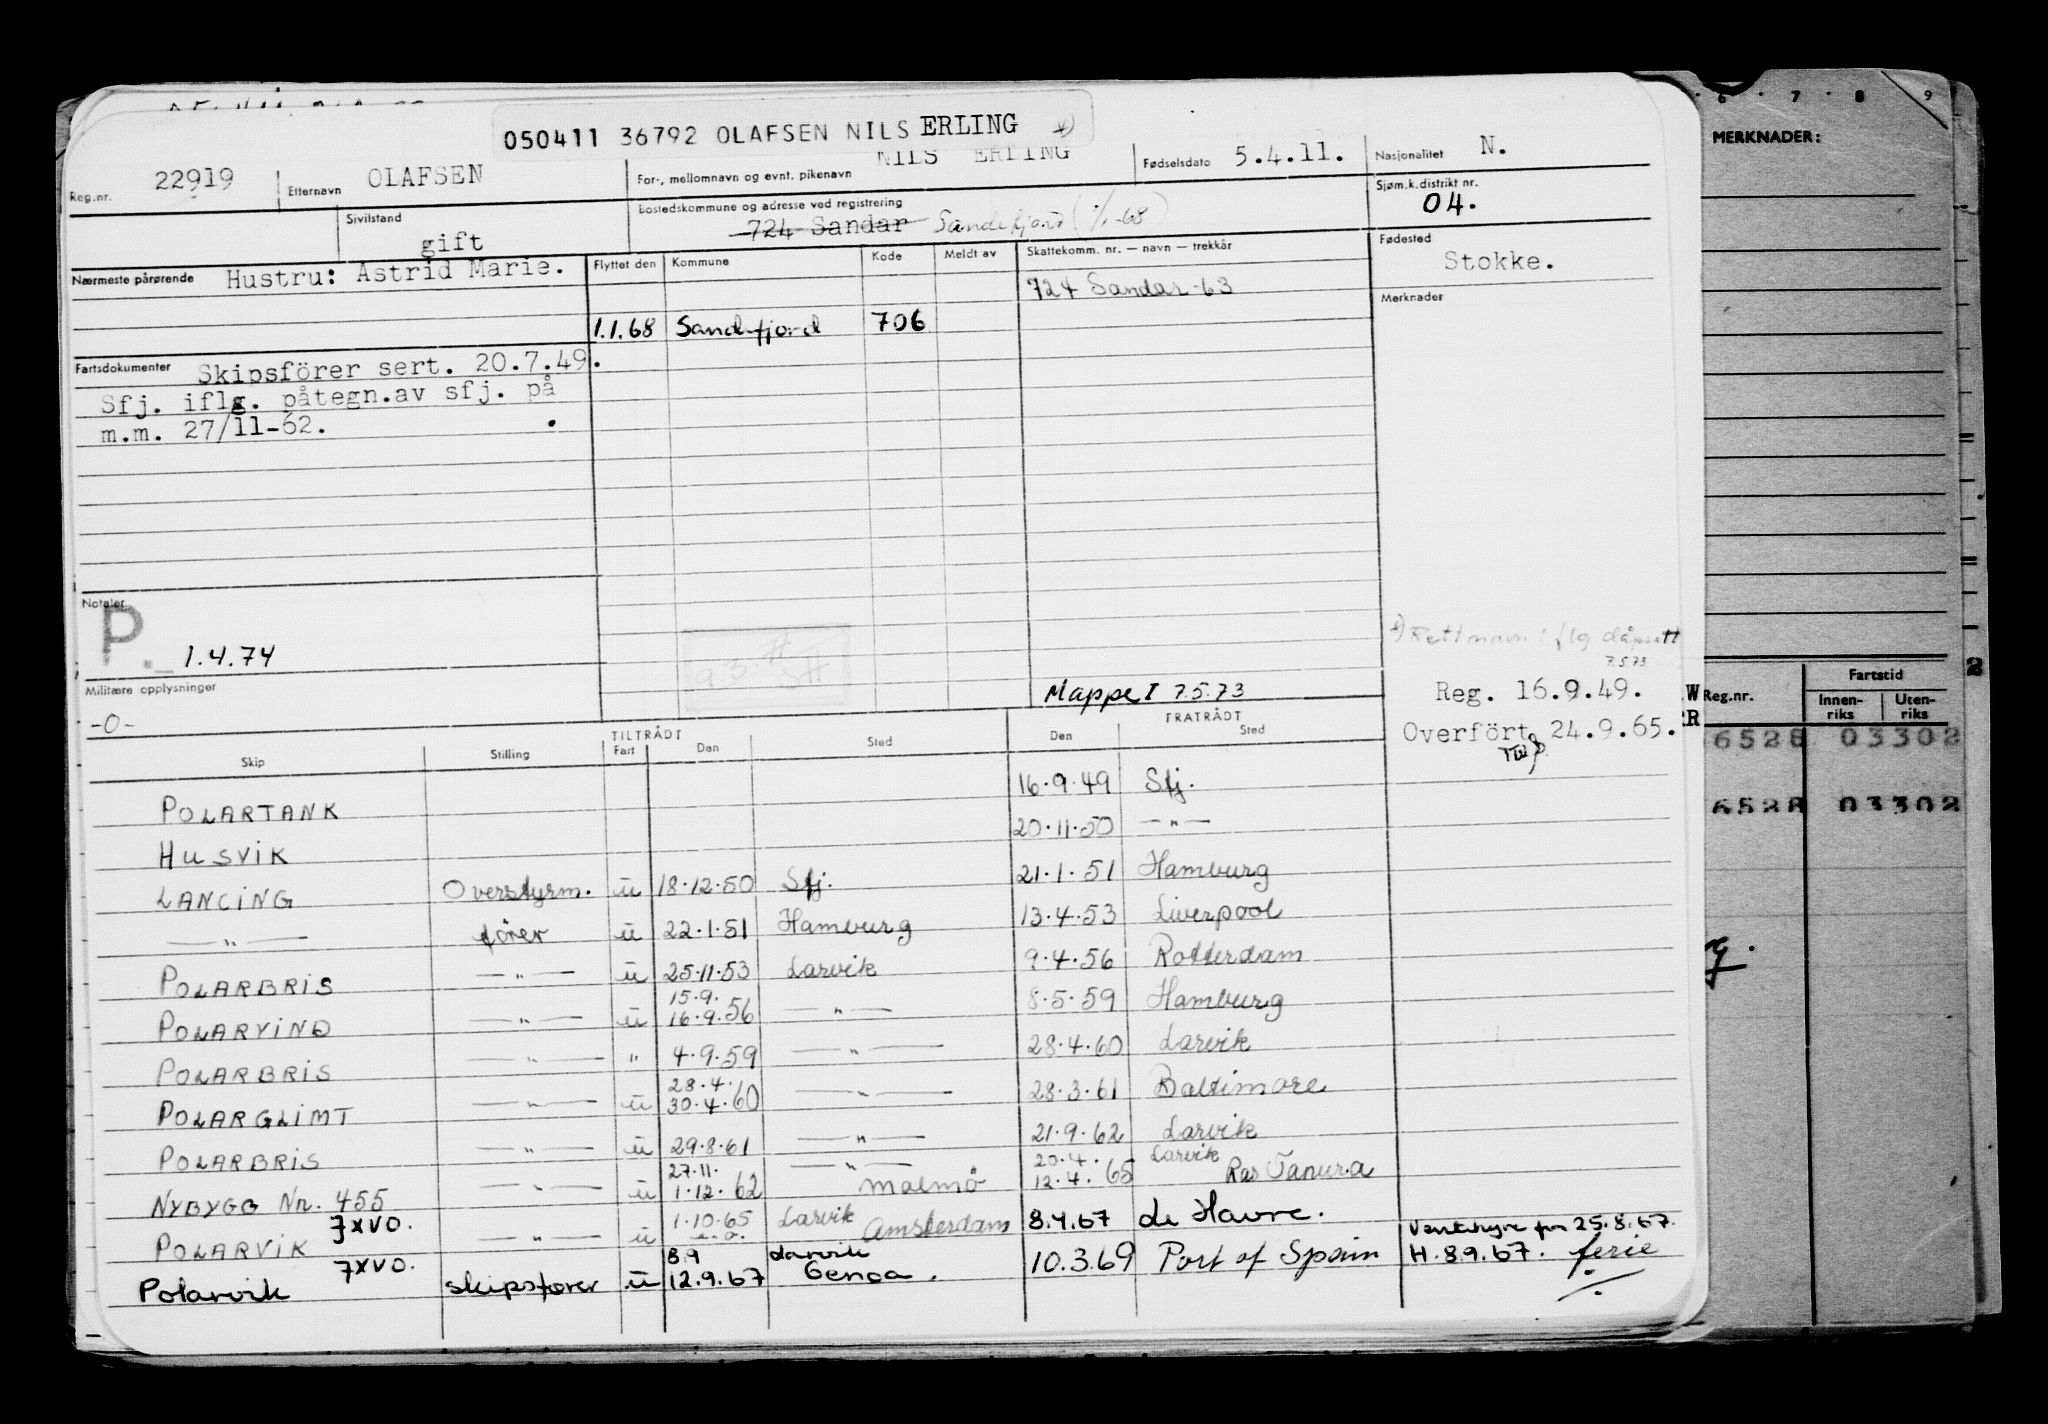 050411 36792 OLAFSEN NILS ERLING x)
Reg.nr. 22919 Etternavn OLAFSEN For-, mellomnavn og evnt. pikenavn NILS ERLING Fødselsdato 5.4.11. Nasjonalitet N.
Sivilstand gift Bostedskommune og adresse ved registrering 724 Sandar Sandefjord (1/1-68) Sjøm.k.distrikt nr. 04.
Nærmeste pårørende Hustru: Astrid Marie. Flyttet den Kommune Kode Meldt av Skattekomm. nr. — navn — trekkår Fødested Stokke.
724 Sandar-63 Merknader
1.1.68 Sandefjord 706
Fartsdokumenter Skipsförer sert. 20.7.49.
Sfj. iflg. påtegn.av sfj. på
m.m. 27/11-62.
Notater
P. 1.4.74
x) Rett navn iflg dåpsatt
7.5.73
Militære opplysninger Mappe I 7.5.73 Reg. 16.9.49.
-0- Overfört 24.9.65.
TILTRÅDT FRATRÅDT
Skip Stilling Fart Den Sted Den Sted
POLARTANK 16.9.49 Sfj.
HUSVIK 20.11.50 —"—
LANCING Overstyrm. u 18.12.50 Sfj. 21.1.51 Hamburg
—"— fører u 22.1.51 Hamburg 13.4.53 Liverpool
POLARBRIS —"— u 25.11.53 Larvik 9.4.56 Rotterdam
15.9.
POLARVIND —"— u 16.9.56 —"— 8.5.59 Hamburg
POLARBRIS —"— " 4.9.59 —"— 28.4.60 Larvik
28.4.
POLARGLIMT —"— u 30.4.60 —"— 28.3.61 Baltimore
POLARBRIS —"— u 29.8.61 —"— 21.9.62 Larvik
27.11. —"— 20.4. Larvik
NYBYGG Nr. 455 —"— u 1.12.62 Malmö 12.4.65 Ras Tanura
7XVO. 1.10.65 Larvik
POLARVIK —"— u Amsterdam 8.4.67 Le Havre. Ventehyre fra 25.8.67.
7XVO. 8.9 Larvik
Polarvik skipsfører u 12.9.67 Genoa. 10.3.69 Port of Spain H. 8.9.67. ferie
6 7 8 9
MERKNADER:
2
W Reg.nr. Fartstid
R Innen-riks Uten-riks
6528 03302
6528 03302